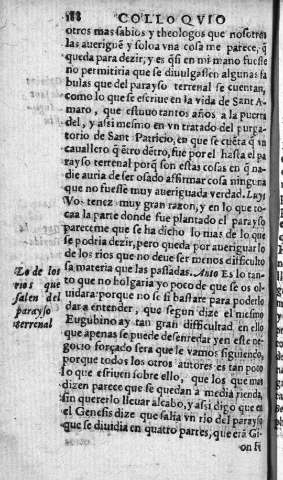 188 COLLOQVIO
otros mas sabios y theologos que nosotros
las aueriguẽ y solo a vna cosa me parece, q̃
queda para dezir, y es q̃ si en mi mano fuesse
no permitiria que se diuulgassen algunas fa
bulas que del parayso terrenal se cuentan,
como lo que se escriue en la vida de Sant A-
maro, que estuuo tantos años a la puerta
del, y assi mesmo en vn tratado del purga-
torio de Sant Patricio, en que se cuẽta q̃ vn
cauallero q̃ ẽtro dẽtro, fue por el hasta el pa
rayso terrenal porq̃ son estas cosas en q̃ na-
die auria de ser osado affirmar cosa ninguna
que no fuesse muy aueriguada verdad. Luys
Vos tenez muy gran razon, y en lo que to-
caa la parte donde fue plantado el parayso
pareceme que se ha dicho lo mas de lo que
se podria dezir, pero queda por aueriguar lo
de los rios que no deue ser menos difficulto
sa materia que las passadas. Anto Es lo tan-
to que no holgaria yo poco de que se os ol-
uidara porque no se si bastare para poderlo
dar a entender, que segun dize el mesmo
Eugubino ay tan gran difficultad en ello
que apenas se puede desenredar y en este ne-
gocio forçado sera que le vamos siguiendo,
porque todos los otros autores es tan poco
lo que escriuen sobre ello, que los que mas
dizen parece que se quedan a media rienda,
sin quererlo lleuar al cabo, y assi digo que en
el Genesis dize que salia vn rio del parayso
que se diuidia en quatro partes, que erã Gi-
on Fi
Lo de los
rios que
salen del
parayso
terrenal